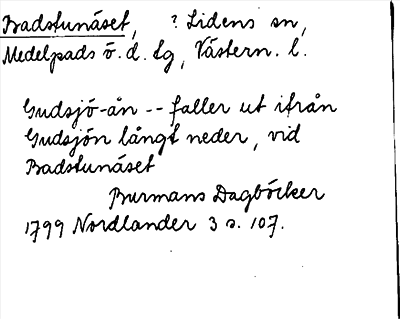 Badstunäset, ? Lidens sn,
Medelpads ö. d. lg, Västern. l.
Gudsjö-ån -- faller ut ifrån
Gudsjön långt neder, vid
Badstunäset
Burmans Dagböcker
1799 Nordlander 3 s. 107.